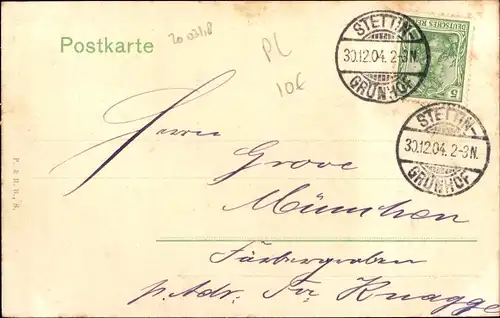 Postkarte
PL
10€
STETTIN-
30.12.04. 2-3N.
GRÜNHOF
DEUTSCHES REICH
5
STETTIN-
30.12.04. 2-3N.
GRÜNHOF
Herrn
Grove
München
Färbergraben
p. Adr. Fr. Knagge